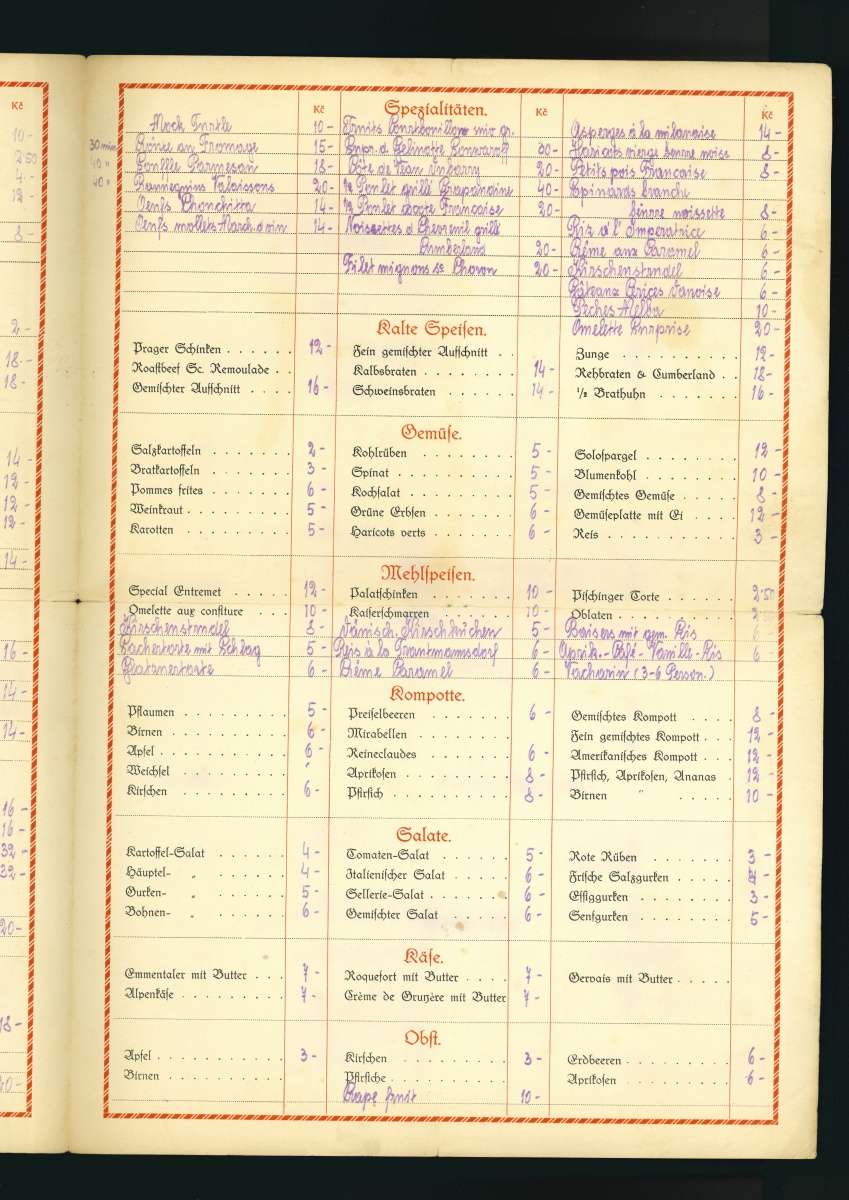 Kč
10-
2·50
4-
12-
8-
2-
18-
18-
14-
12-
12-
12-
14-
16-
14-
14-
16-
16-
32-
22-
20-
18-
20-
Kč Spezialitäten. Kč Kč
Mock Turtle 10-
30 min au Fromage 15-
40 " Souffle Parmesan 18-
40 " Valaissons 20-
Oeufs Chonchitra 14-
Oeufs mollets March. d vin 14-
Truits Courtbouillon
d. Gelinotte Souwaroff 30-
Côte de Veau 20-
½ Poulet grillé Crapaudine 40-
½ Poulet cocote Francaise 20-
Noissettes d. Chevreuil grillé
Cumberland 20-
Filet mignons sc. Choron 20-
Asperges à la milanaise 14-
Haricots vierge beurre noiss 8-
Petits pois Francaise 8-
Epinards branche
beurre noissette 8-
Riz à l'Imperatrice 6-
Krême aux Caramel 6-
Kirschenstrudel 6-
Gâteaux Cerices Danoise 6-
Peches Melba 10-
Omelette surprise 20-
Kalte Speisen.
Prager Schinken 12- Fein gemischter Aufschnitt Zunge 12-
Roastbeef Sc. Remoulade Kalbsbraten 14- Rehbraten & Cumberland 18-
Gemischter Aufschnitt 16- Schweinsbraten 14- ½ Brathuhn 16-
Gemüse.
Salzkartoffeln 2- Kohlrüben 5- Solospargel 12-
Bratkartoffeln 3- Spinat 5- Blumenkohl 10-
Pommes frites 6- Kochsalat 5- Gemischtes Gemüse 8-
Weinkraut 5- Grüne Erbsen 6- Gemüseplatte mit Ei 12-
Karotten 5- Haricots verts 6- Reis 3-
Mehlspeisen.
Special Entremet 12- Palatschinken 10- Pischinger Torte 2·50
Omelette aux confiture 10- Kaiserschmarren 10- Oblaten 2·50
Kirschenstrudel 8- Dänisch. Kirschkuchen 5- Baisers mit gem. Eis 6-
Sachertorte mit Schlag 5- Reis à la Trautmannsdorf 6- Aprik.-Café-Vanille-Eis 6-
Linznertorte 6- Krême Caramel 6- Vacharin (3-6 Person.)
Kompotte.
Pflaumen 5- Preiselbeeren 6- Gemischtes Kompott 8-
Birnen 6- Mirabellen Fein gemischtes Kompott 12-
Äpfel 6- Reineclaudes 6- Amerikanisches Kompott 12-
Weichsel " Aprikosen 8- Pfirsich, Aprikosen, Ananas 12-
Kirschen 6- Pfirsich 8- Birnen " 10-
Salate.
Kartoffel-Salat 4- Tomaten-Salat 5- Rote Rüben 3-
Häuptel- " 4- Italienischer Salat 6- Frische Salzgurken 4-
Gurken- " 5- Sellerie-Salat 6- Essiggurken 3-
Bohnen- " 6- Gemischter Salat 6- Senfgurken 5-
Käse.
Emmentaler mit Butter 7- Roquefort mit Butter 7- Gervais mit Butter
Alpenkäse 7- Crème de Gruyère mit Butter 7-
Obst.
Äpfel 3- Kirschen 3- Erdbeeren 6-
Birnen Pfirsiche Aprikosen 6-
Grape fruit 10-